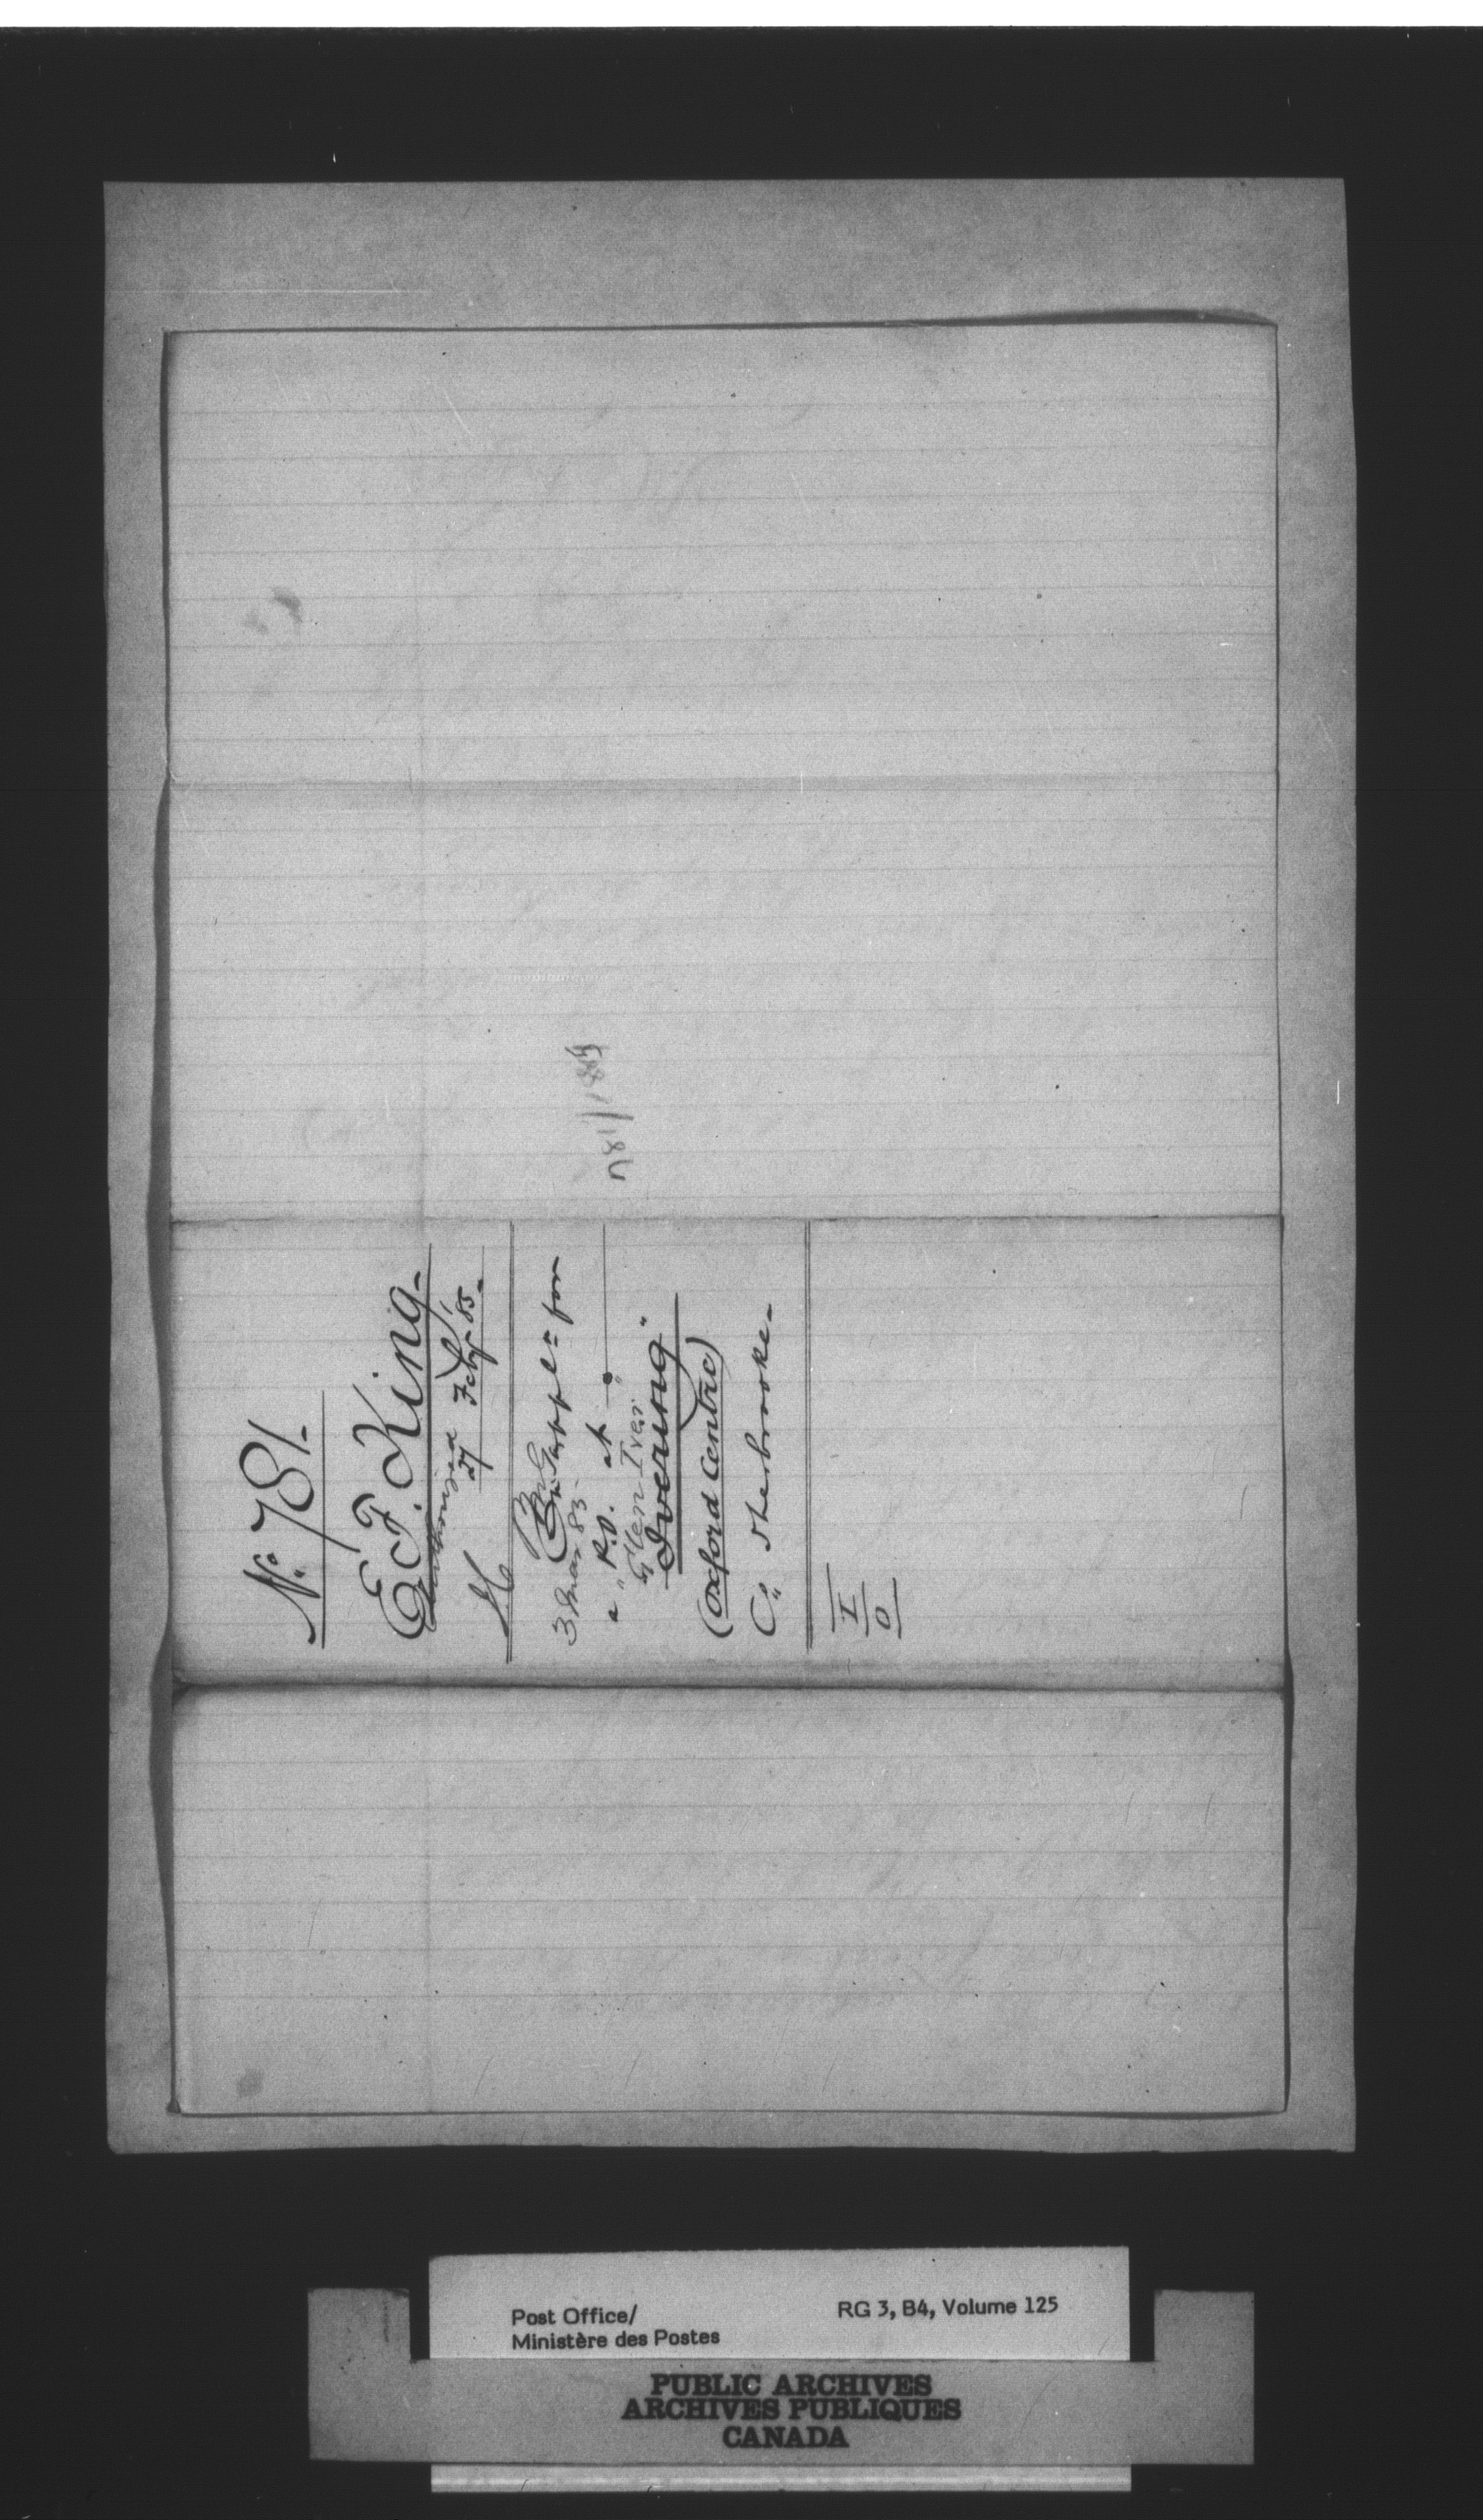 No. 781.
E. F. King.
Authorised
27 Feby '85.
On Appl. for
3 Mar 85
a P.O. at
Glen Iver
"Ivering"
(Oxford Centre)
Co. Sherbrooke.
I
O
781/1884
Post Office/
Ministère des Postes
RG 3, B4, Volume 125
PUBLIC ARCHIVES
ARCHIVES PUBLIQUES
CANADA